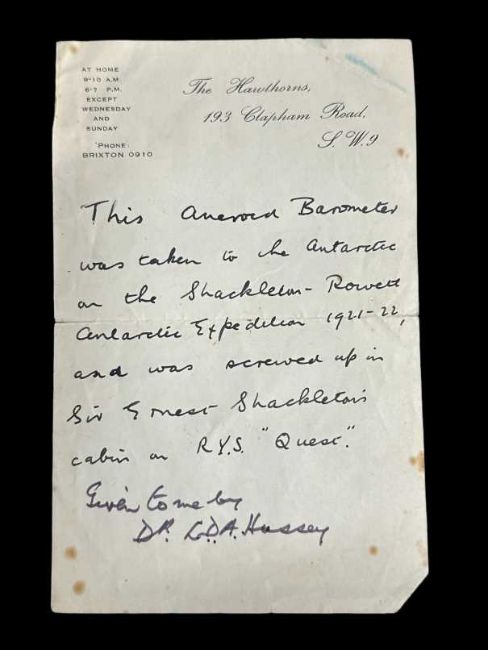 AT HOME
9-10 A.M
6-7 P.M.
EXCEPT
WEDNESDAY
AND
SUNDAY
'PHONE:
BRIXTON 0910
The Hawthorns,
193 Clapham Road,
S.W.9
This Aneroid Barometer
was taken to the Antarctic
on the Shackleton-Rowett
Antarctic Expedition 1921-22,
and was screwed up in
Sir Ernest Shackleton's
cabin on R.Y.S. "Quest".
Given to me by
DR. L.D.A. Hussey